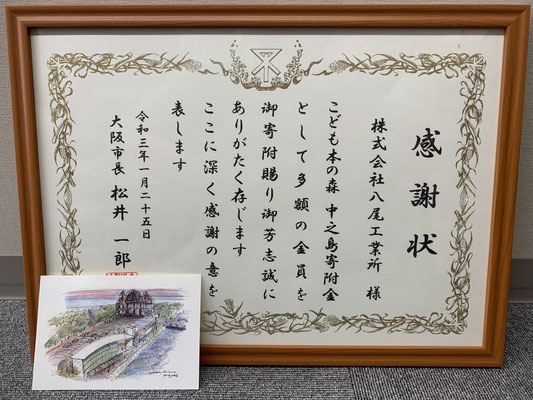 感謝状
株式会社八尾工業所 様
こども本の森 中之島寄附金
として多額の金員を
御寄附賜り御芳志誠に
ありがたく存じます
ここに深く感謝の意を
表します
令和三年一月二十五日
大阪市長 松井 一郎